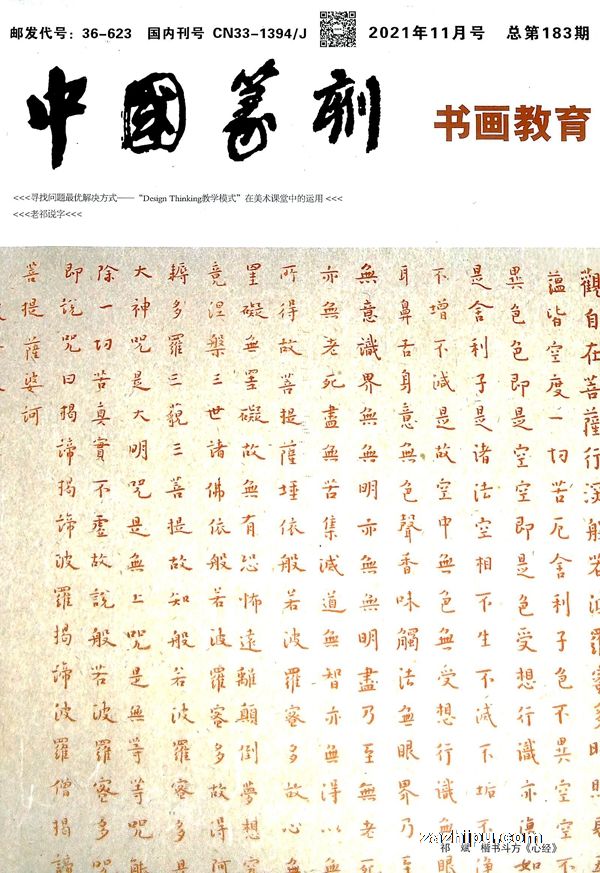 邮发代号：36-623 国内刊号 CN33-1394/J 2021年11月号 总第183期
中國篆刻 书画教育
<<<寻找问题最优解决方式——“Design Thinking教学模式”在美术课堂中的运用<<<
<<<老祁说字<<<
觀自在菩薩行深般若波羅蜜多時照見
蘊皆空度一切苦厄舍利子色不異空空不
異色色即是空空即是色受想行識亦復如
是舍利子是諸法空相不生不滅不垢不淨
不增不減是故空中無色無受想行識無眼
耳鼻舌身意無色聲香味觸法無眼界乃至
無意識界無無明亦無無明盡乃至無老死
亦無老死盡無苦集滅道無智亦無得以無
所得故菩提薩埵依般若波羅蜜多故心無
罣礙無罣礙故無有恐怖遠離顛倒夢想究
竟涅槃三世諸佛依般若波羅蜜多故得阿
耨多羅三藐三菩提故知般若波羅蜜多是
大神咒是大明咒是無上咒是無等等咒能
除一切苦真實不虛故說般若波羅蜜多咒
即說咒曰揭諦揭諦波羅揭諦波羅僧揭諦
菩提薩婆訶
zazhipu.com
祁斌 楷书斗方《心经》